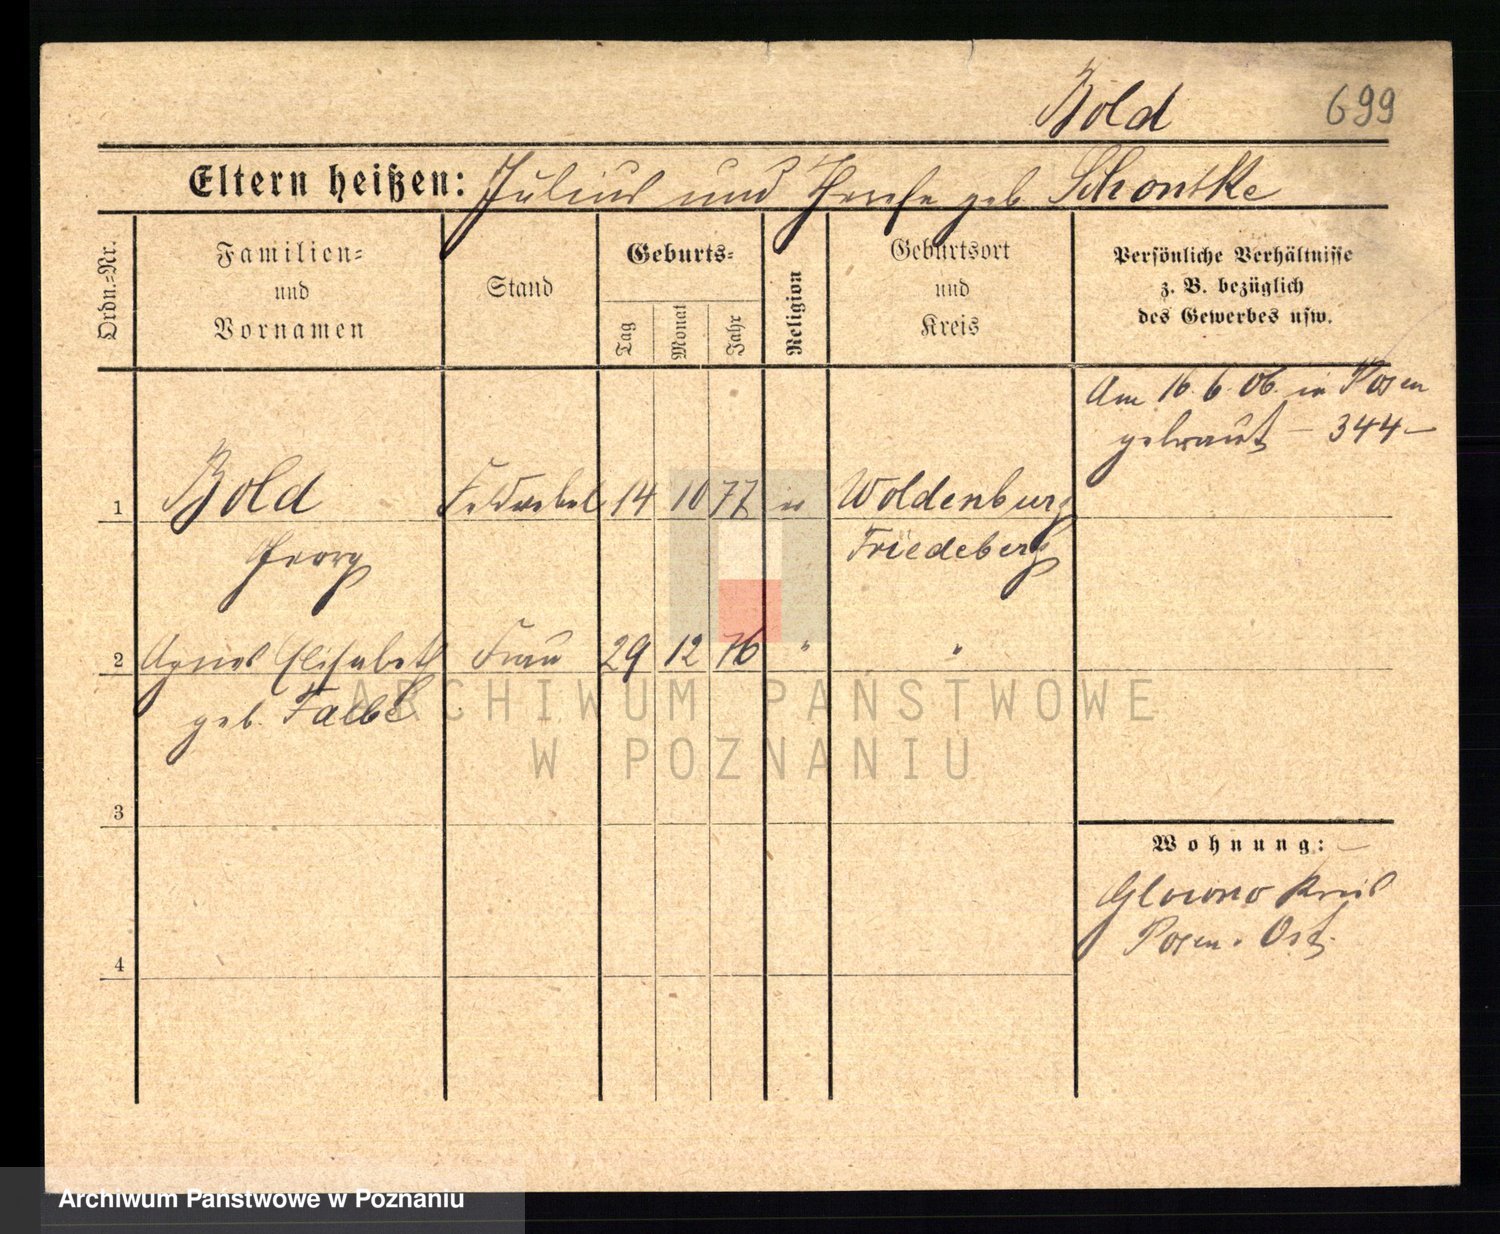 Bold
699
Eltern heißen: Julius und Therese geb Schontke
Ordn.-Nr.
Familien=
und
Vornamen
Stand
Geburts=
Tag
Monat
Jahr
Religion
Geburtsort
und
Kreis
Persönliche Verhältnisse
z. B. bezüglich
des Gewerbes usw.
Am 16. 6. 06. in Posen
getraut – 344 –
1 Bold Feldwebel 14 10 77 Woldenburg
Georg Friedeberg
2 Agnes Elisabeth Frau 29 12 76 " "
geb. Falbe
3
4
Wohnung:
Glowno Kreis
Posen. Ost.
ARCHIWUM PAŃSTWOWE
W POZNANIU
Archiwum Państwowe w Poznaniu